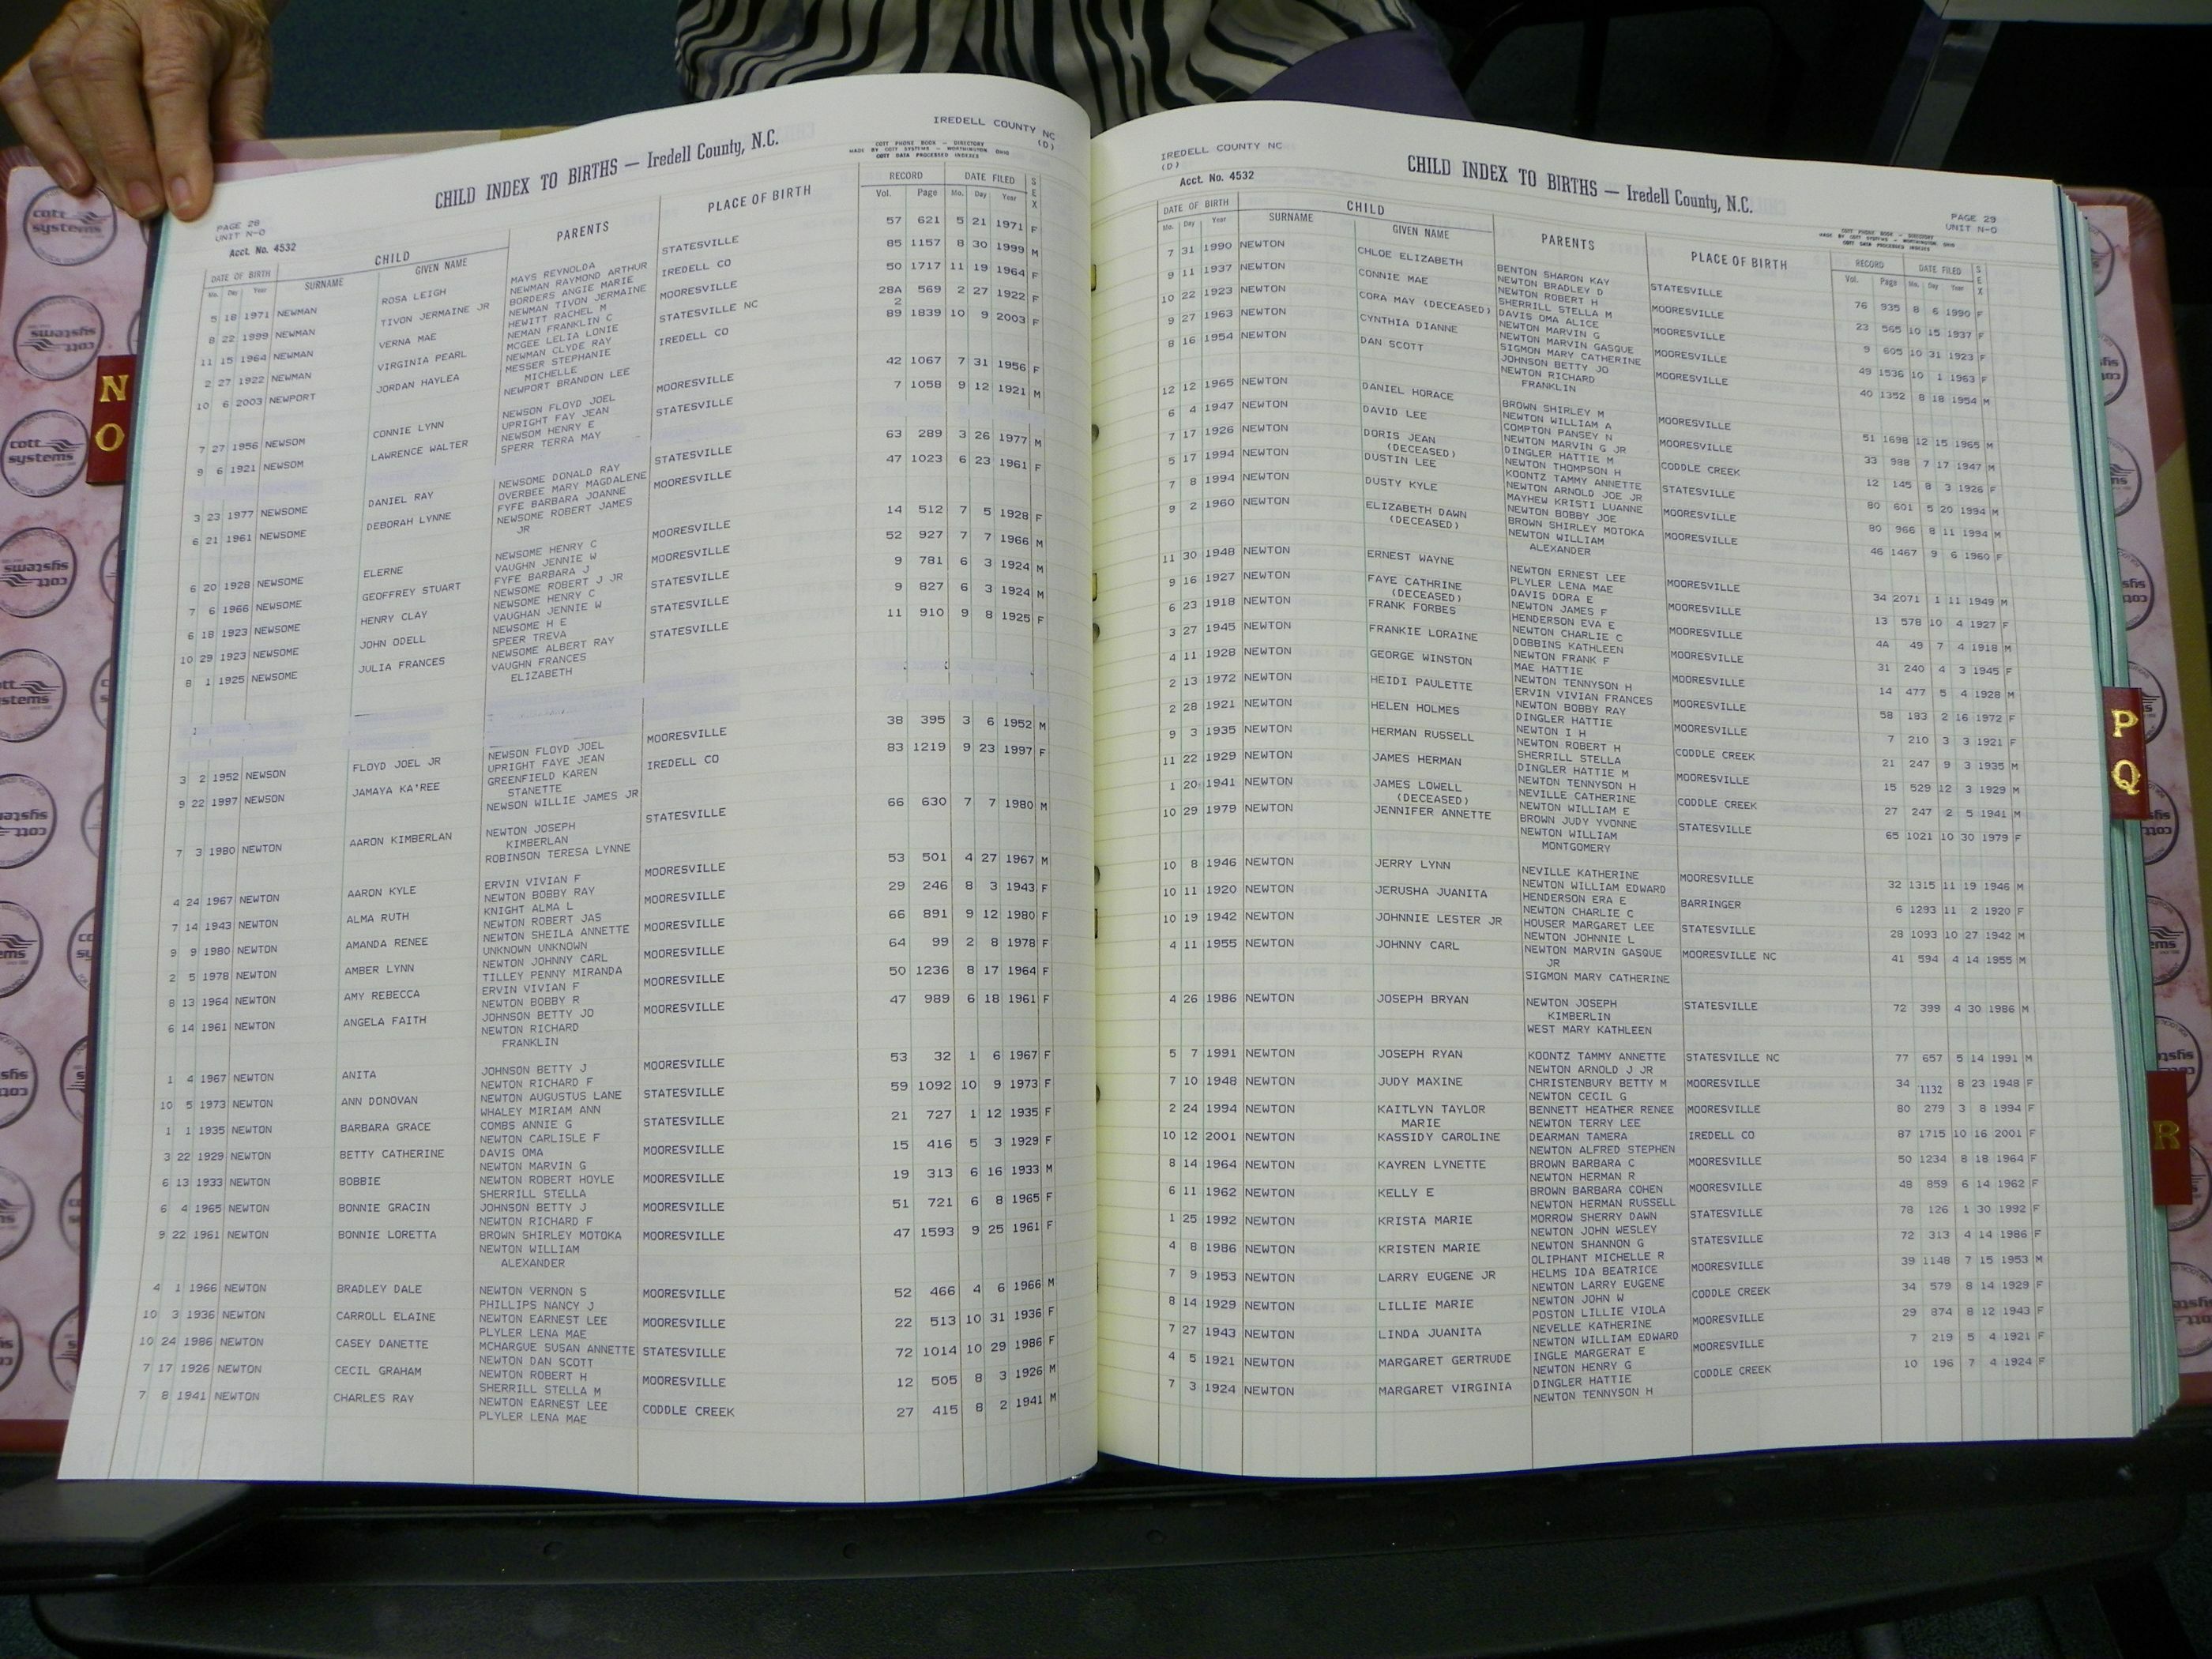 IREDELL COUNTY NC
(D)
CHILD INDEX TO BIRTHS — Iredell County, N.C.
COTT PHONE BOOK — DIRECTORY
MADE BY COTT SYSTEMS — WORTHINGTON, OHIO
COTT DATA PROCESSED INDEXES
PAGE 28
UNIT N-O
Acct. No. 4532
DATE OF BIRTH CHILD PARENTS PLACE OF BIRTH RECORD DATE FILED SEX
Mo. Day Year SURNAME GIVEN NAME Vol. Page Mo. Day Year
5 18 1971 NEWMAN ROSA LEIGH MAYS REYNOLDA STATESVILLE 57 621 5 21 1971 F
NEWMAN RAYMOND ARTHUR
8 22 1999 NEWMAN TIVON JERMAINE JR BORDERS ANGIE MARIE IREDELL CO 85 1157 8 30 1999 M
NEWMAN TIVON JERMAINE
11 15 1964 NEWMAN VERNA MAE HEWITT RACHEL M MOORESVILLE 50 1717 11 19 1964 F
NEMAN FRANKLIN C
2 27 1922 NEWMAN VIRGINIA PEARL MCGEE LELIA LONIE STATESVILLE NC 28A 569 2 27 1922 F
NEWMAN CLYDE RAY 2
10 6 2003 NEWPORT JORDAN HAYLEA MESSER STEPHANIE IREDELL CO 89 1839 10 9 2003 F
MICHELLE
NEWPORT BRANDON LEE
7 27 1956 NEWSOM CONNIE LYNN NEWSON FLOYD JOEL MOORESVILLE 42 1067 7 31 1956 F
UPRIGHT FAY JEAN
9 6 1921 NEWSOM LAWRENCE WALTER NEWSOM HENRY E STATESVILLE 7 1058 9 12 1921 M
SPERR TERRA MAY
3 23 1977 NEWSOME DANIEL RAY NEWSOME DONALD RAY STATESVILLE 63 289 3 26 1977 M
OVERBEE MARY MAGDALENE
6 21 1961 NEWSOME DEBORAH LYNNE FYFE BARBARA JOANNE MOORESVILLE 47 1023 6 23 1961 F
NEWSOME ROBERT JAMES
JR
6 20 1928 NEWSOME ELERNE NEWSOME HENRY C MOORESVILLE 14 512 7 5 1928 F
VAUGHN JENNIE W
7 6 1966 NEWSOME GEOFFREY STUART FYFE BARBARA J MOORESVILLE 52 927 7 7 1966 M
NEWSOME ROBERT J JR
6 18 1923 NEWSOME HENRY CLAY NEWSOME HENRY C STATESVILLE 9 781 6 3 1924 M
VAUGHAN JENNIE W
10 29 1923 NEWSOME JOHN ODELL NEWSOME H E STATESVILLE 9 827 6 3 1924 M
SPEER TREVA
8 1 1925 NEWSOME JULIA FRANCES NEWSOME ALBERT RAY STATESVILLE 11 910 9 8 1925 F
VAUGHN FRANCES
ELIZABETH
3 2 1952 NEWSON FLOYD JOEL JR NEWSON FLOYD JOEL MOORESVILLE 38 395 3 6 1952 M
UPRIGHT FAYE JEAN
9 22 1997 NEWSON JAMAYA KA'REE GREENFIELD KAREN IREDELL CO 83 1219 9 23 1997 F
STANETTE
NEWSON WILLIE JAMES JR
7 3 1980 NEWTON AARON KIMBERLAN NEWTON JOSEPH STATESVILLE 66 630 7 7 1980 M
KIMBERLAN
ROBINSON TERESA LYNNE
4 24 1967 NEWTON AARON KYLE ERVIN VIVIAN F MOORESVILLE 53 501 4 27 1967 M
NEWTON BOBBY RAY
7 14 1943 NEWTON ALMA RUTH KNIGHT ALMA L MOORESVILLE 29 246 8 3 1943 F
NEWTON ROBERT JAS
9 9 1980 NEWTON AMANDA RENEE NEWTON SHEILA ANNETTE MOORESVILLE 66 891 9 12 1980 F
UNKNOWN UNKNOWN
2 5 1978 NEWTON AMBER LYNN NEWTON JOHNNY CARL MOORESVILLE 64 99 2 8 1978 F
TILLEY PENNY MIRANDA
8 13 1964 NEWTON AMY REBECCA ERVIN VIVIAN F MOORESVILLE 50 1236 8 17 1964 F
NEWTON BOBBY R
6 14 1961 NEWTON ANGELA FAITH JOHNSON BETTY JO MOORESVILLE 47 989 6 18 1961 F
NEWTON RICHARD
FRANKLIN
1 4 1967 NEWTON ANITA JOHNSON BETTY J MOORESVILLE 53 32 1 6 1967 F
NEWTON RICHARD F
10 5 1973 NEWTON ANN DONOVAN NEWTON AUGUSTUS LANE STATESVILLE 59 1092 10 9 1973 F
WHALEY MIRIAM ANN
1 1 1935 NEWTON BARBARA GRACE COMBS ANNIE G STATESVILLE 21 727 1 12 1935 F
NEWTON CARLISLE F
3 22 1929 NEWTON BETTY CATHERINE DAVIS OMA MOORESVILLE 15 416 5 3 1929 F
NEWTON MARVIN G
6 13 1933 NEWTON BOBBIE NEWTON ROBERT HOYLE MOORESVILLE 19 313 6 16 1933 M
SHERRILL STELLA
6 4 1965 NEWTON BONNIE GRACIN JOHNSON BETTY J MOORESVILLE 51 721 6 8 1965 F
NEWTON RICHARD F
9 22 1961 NEWTON BONNIE LORETTA BROWN SHIRLEY MOTOKA MOORESVILLE 47 1593 9 25 1961 F
NEWTON WILLIAM
ALEXANDER
4 1 1966 NEWTON BRADLEY DALE NEWTON VERNON S MOORESVILLE 52 466 4 6 1966 M
PHILLIPS NANCY J
10 3 1936 NEWTON CARROLL ELAINE NEWTON EARNEST LEE MOORESVILLE 22 513 10 31 1936 F
PLYLER LENA MAE
10 24 1986 NEWTON CASEY DANETTE MCHARGUE SUSAN ANNETTE STATESVILLE 72 1014 10 29 1986 F
NEWTON DAN SCOTT
7 17 1926 NEWTON CECIL GRAHAM NEWTON ROBERT H MOORESVILLE 12 505 8 3 1926 M
SHERRILL STELLA M
7 8 1941 NEWTON CHARLES RAY NEWTON EARNEST LEE CODDLE CREEK 27 415 8 2 1941 M
PLYLER LENA MAE
IREDELL COUNTY NC
(D)
Acct. No. 4532
CHILD INDEX TO BIRTHS — Iredell County, N.C.
PAGE 29
UNIT N-O
COTT PHONE BOOK — DIRECTORY
MADE BY COTT SYSTEMS — WORTHINGTON, OHIO
COTT DATA PROCESSED INDEXES
DATE OF BIRTH CHILD PARENTS PLACE OF BIRTH RECORD DATE FILED SEX
Mo. Day Year SURNAME GIVEN NAME Vol. Page Mo. Day Year
7 31 1990 NEWTON CHLOE ELIZABETH BENTON SHARON KAY STATESVILLE 76 935 8 6 1990 F
NEWTON BRADLEY D
9 11 1937 NEWTON CONNIE MAE NEWTON ROBERT H MOORESVILLE 23 565 10 15 1937 F
SHERRILL STELLA M
10 22 1923 NEWTON CORA MAY (DECEASED) DAVIS OMA ALICE MOORESVILLE 9 605 10 31 1923 F
NEWTON MARVIN G
9 27 1963 NEWTON CYNTHIA DIANNE NEWTON MARVIN GASQUE MOORESVILLE 49 1536 10 1 1963 F
SIGMON MARY CATHERINE
8 16 1954 NEWTON DAN SCOTT JOHNSON BETTY JO MOORESVILLE 40 1352 8 18 1954 M
NEWTON RICHARD
FRANKLIN
12 12 1965 NEWTON DANIEL HORACE BROWN SHIRLEY M MOORESVILLE 51 1698 12 15 1965 M
NEWTON WILLIAM A
6 4 1947 NEWTON DAVID LEE COMPTON PANSEY N MOORESVILLE 33 988 7 17 1947 M
NEWTON MARVIN G JR
7 17 1926 NEWTON DORIS JEAN DINGLER HATTIE M CODDLE CREEK 12 145 8 3 1926 F
(DECEASED) NEWTON THOMPSON H
5 17 1994 NEWTON DUSTIN LEE KOONTZ TAMMY ANNETTE STATESVILLE 80 601 5 20 1994 M
NEWTON ARNOLD JOE JR
7 8 1994 NEWTON DUSTY KYLE MAYHEW KRISTI LUANNE MOORESVILLE 80 966 8 11 1994 M
NEWTON BOBBY JOE
9 2 1960 NEWTON ELIZABETH DAWN BROWN SHIRLEY MOTOKA MOORESVILLE 46 1467 9 6 1960 F
(DECEASED) NEWTON WILLIAM
ALEXANDER
11 30 1948 NEWTON ERNEST WAYNE NEWTON ERNEST LEE MOORESVILLE 34 2071 1 11 1949 M
PLYLER LENA MAE
9 16 1927 NEWTON FAYE CATHRINE DAVIS DORA E MOORESVILLE 13 578 10 4 1927 F
(DECEASED) NEWTON JAMES F
6 23 1918 NEWTON FRANK FORBES HENDERSON EVA E MOORESVILLE 4A 49 7 4 1918 M
NEWTON CHARLIE C
3 27 1945 NEWTON FRANKIE LORAINE DOBBINS KATHLEEN MOORESVILLE 31 240 4 3 1945 F
NEWTON FRANK F
4 11 1928 NEWTON GEORGE WINSTON MAE HATTIE MOORESVILLE 14 477 5 4 1928 M
NEWTON TENNYSON H
2 13 1972 NEWTON HEIDI PAULETTE ERVIN VIVIAN FRANCES MOORESVILLE 58 183 2 16 1972 F
NEWTON BOBBY RAY
2 28 1921 NEWTON HELEN HOLMES DINGLER HATTIE MOORESVILLE 7 210 3 3 1921 F
NEWTON I H
9 3 1935 NEWTON HERMAN RUSSELL NEWTON ROBERT H CODDLE CREEK 21 247 9 3 1935 M
SHERRILL STELLA
11 22 1929 NEWTON JAMES HERMAN DINGLER HATTIE M MOORESVILLE 15 529 12 3 1929 M
NEWTON TENNYSON H
1 20 1941 NEWTON JAMES LOWELL NEVILLE CATHERINE CODDLE CREEK 27 247 2 5 1941 M
(DECEASED) NEWTON WILLIAM E
10 29 1979 NEWTON JENNIFER ANNETTE BROWN JUDY YVONNE STATESVILLE 65 1021 10 30 1979 F
NEWTON WILLIAM
MONTGOMERY
10 8 1946 NEWTON JERRY LYNN NEVILLE KATHERINE MOORESVILLE 32 1315 11 19 1946 M
NEWTON WILLIAM EDWARD
10 11 1920 NEWTON JERUSHA JUANITA HENDERSON ERA E BARRINGER 6 1293 11 2 1920 F
NEWTON CHARLIE C
10 19 1942 NEWTON JOHNNIE LESTER JR HOUSER MARGARET LEE STATESVILLE 28 1093 10 27 1942 M
NEWTON JOHNNIE L
4 11 1955 NEWTON JOHNNY CARL NEWTON MARVIN GASQUE MOORESVILLE NC 41 594 4 14 1955 M
JR
SIGMON MARY CATHERINE
4 26 1986 NEWTON JOSEPH BRYAN NEWTON JOSEPH STATESVILLE 72 399 4 30 1986 M
KIMBERLIN
WEST MARY KATHLEEN
5 7 1991 NEWTON JOSEPH RYAN KOONTZ TAMMY ANNETTE STATESVILLE NC 77 657 5 14 1991 M
NEWTON ARNOLD J JR
7 10 1948 NEWTON JUDY MAXINE CHRISTENBURY BETTY M MOORESVILLE 34 1132 8 23 1948 F
NEWTON CECIL G
2 24 1994 NEWTON KAITLYN TAYLOR BENNETT HEATHER RENEE MOORESVILLE 80 279 3 8 1994 F
MARIE NEWTON TERRY LEE
10 12 2001 NEWTON KASSIDY CAROLINE DEARMAN TAMERA IREDELL CO 87 1715 10 16 2001 F
NEWTON ALFRED STEPHEN
8 14 1964 NEWTON KAYREN LYNETTE BROWN BARBARA C MOORESVILLE 50 1234 8 18 1964 F
NEWTON HERMAN R
6 11 1962 NEWTON KELLY E BROWN BARBARA COHEN MOORESVILLE 48 859 6 14 1962 F
NEWTON HERMAN RUSSELL
1 25 1992 NEWTON KRISTA MARIE MORROW SHERRY DAWN STATESVILLE 78 126 1 30 1992 F
NEWTON JOHN WESLEY
4 8 1986 NEWTON KRISTEN MARIE NEWTON SHANNON G STATESVILLE 72 313 4 14 1986 F
OLIPHANT MICHELLE R
7 9 1953 NEWTON LARRY EUGENE JR HELMS IDA BEATRICE MOORESVILLE 39 1148 7 15 1953 M
NEWTON LARRY EUGENE
8 14 1929 NEWTON LILLIE MARIE NEWTON JOHN W CODDLE CREEK 34 579 8 14 1929 F
POSTON LILLIE VIOLA
7 27 1943 NEWTON LINDA JUANITA NEVELLE KATHERINE MOORESVILLE 29 874 8 12 1943 F
NEWTON WILLIAM EDWARD
4 5 1921 NEWTON MARGARET GERTRUDE INGLE MARGERAT E MOORESVILLE 7 219 5 4 1921 F
NEWTON HENRY G
7 3 1924 NEWTON MARGARET VIRGINIA DINGLER HATTIE CODDLE CREEK 10 196 7 4 1924 F
NEWTON TENNYSON H
N
O
P
Q
R
cott
systems